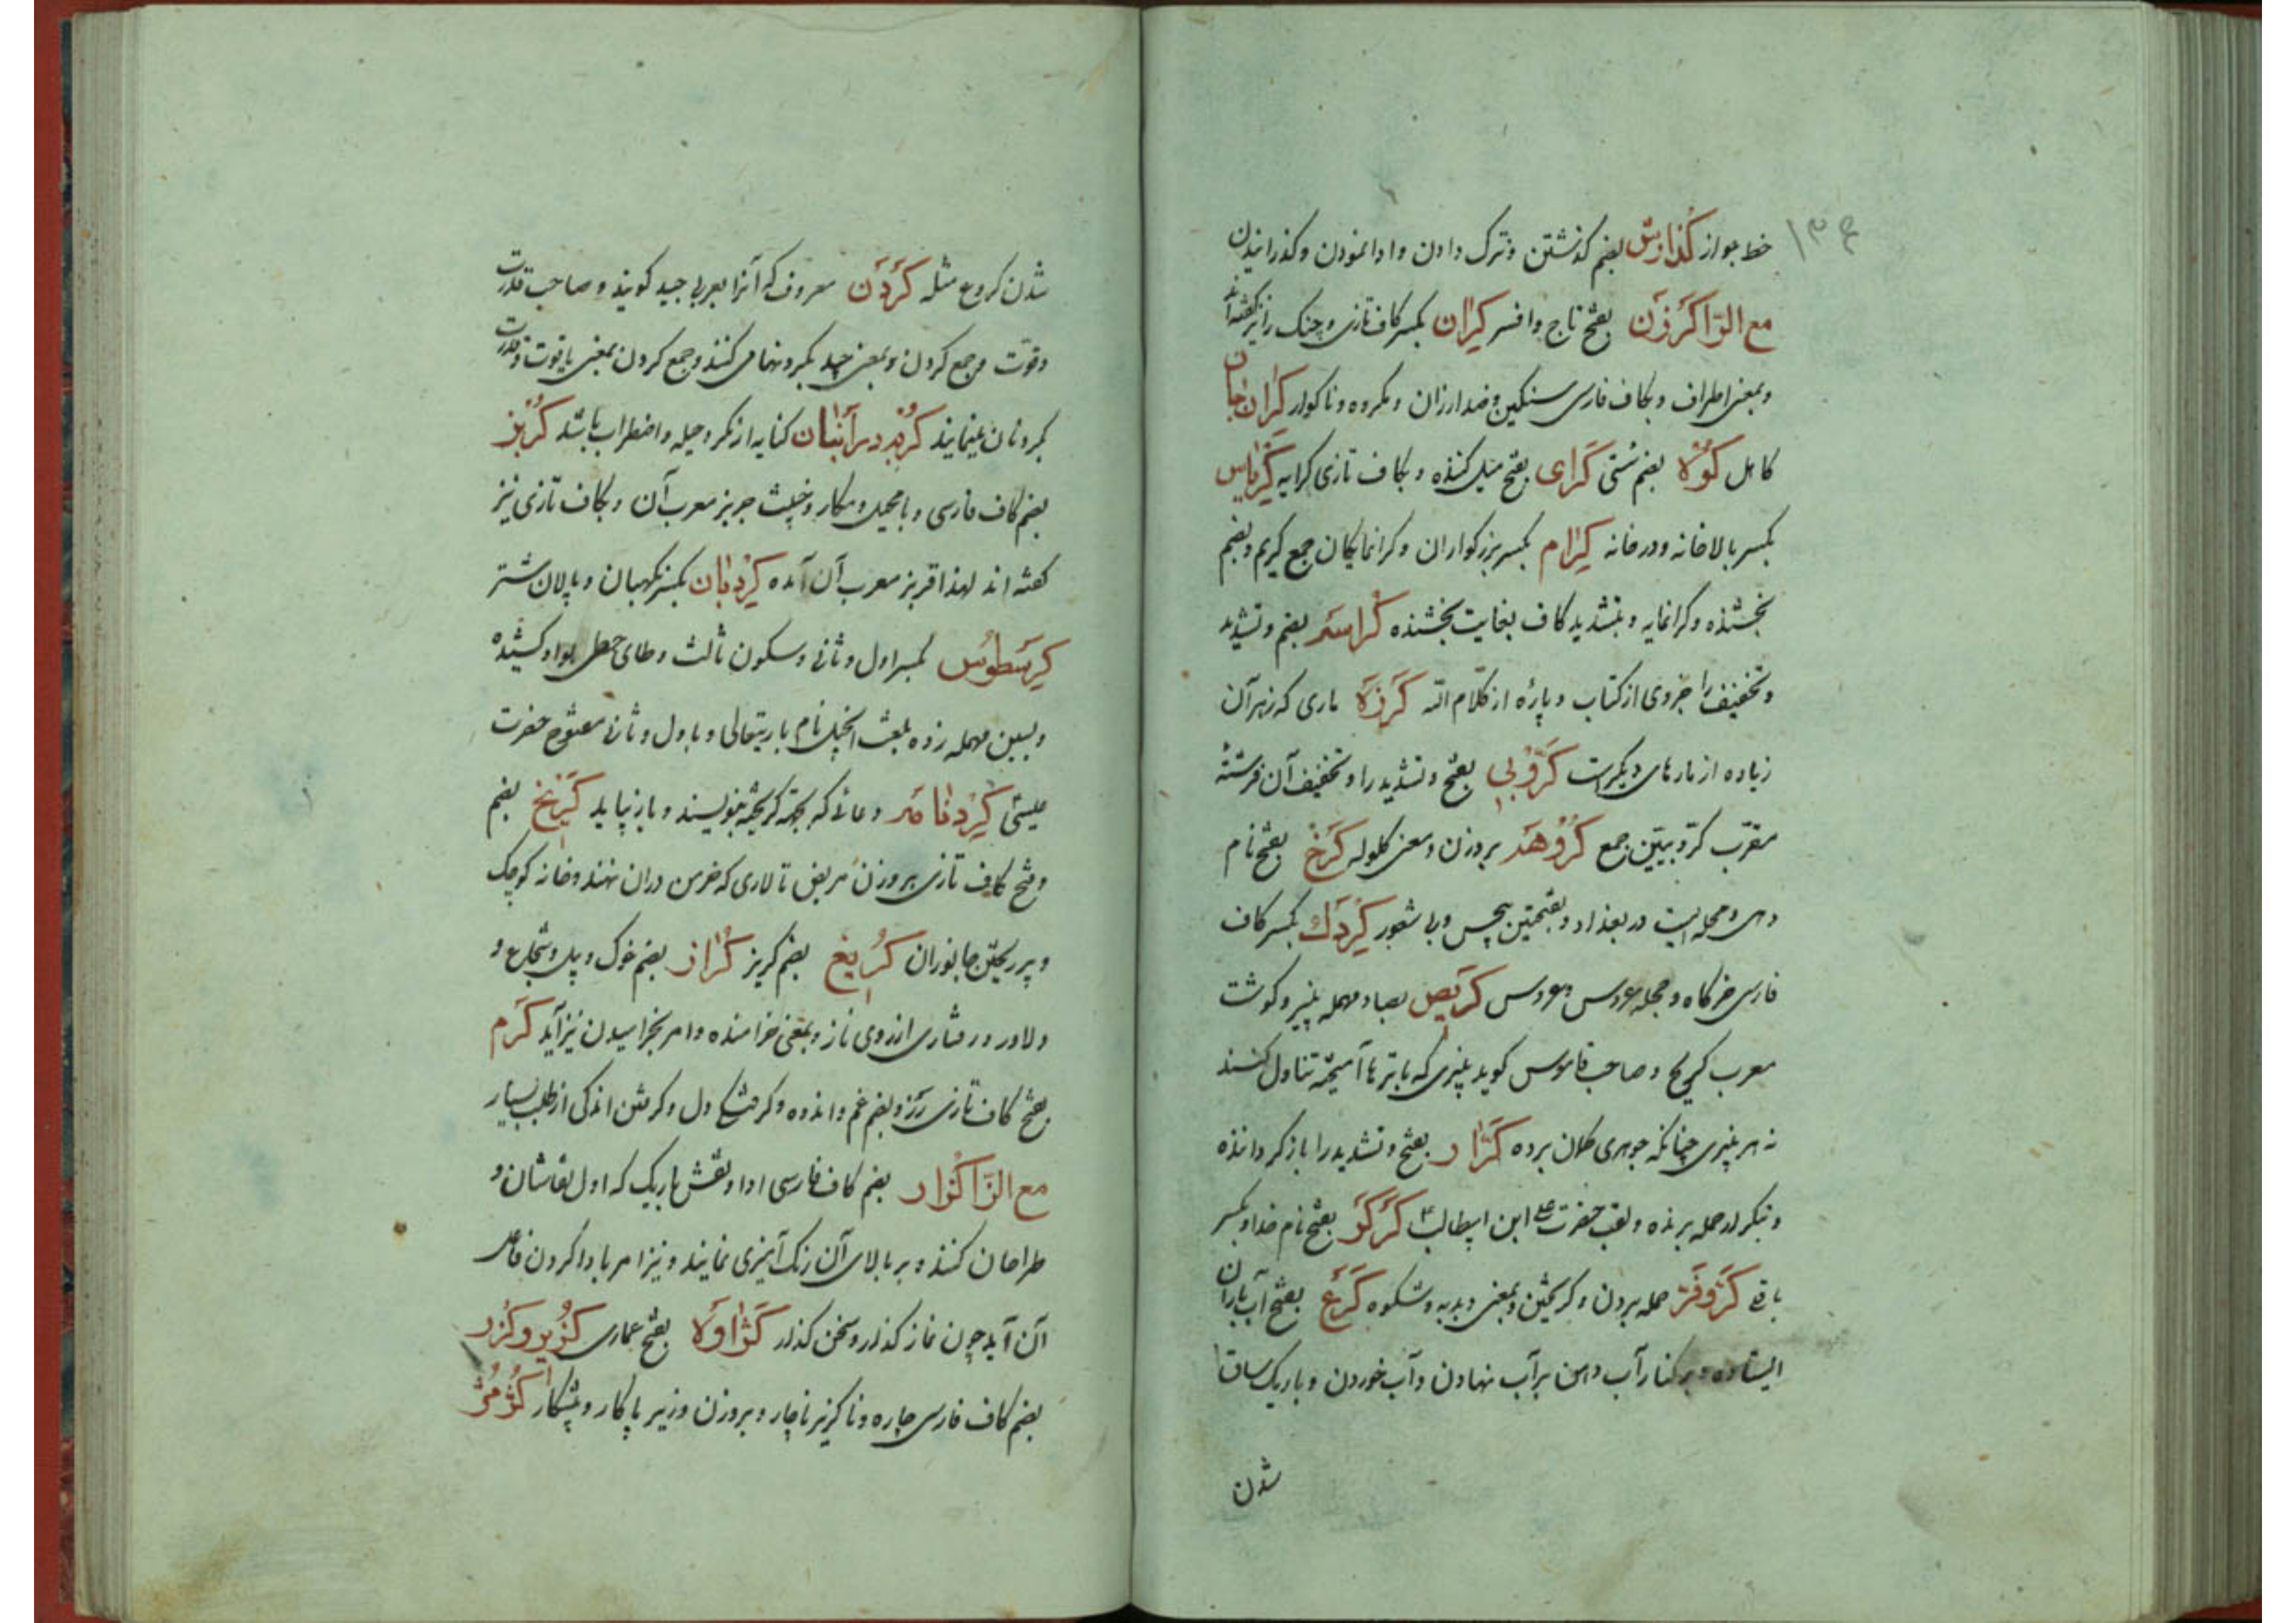 ۱۳۶
خط جواز کذارش بضم کذشتن و ترک دادن و ادا نمودن و کذرانیدن
مع الرّا کَرزَن بفتح تاج و افسر کِران بکسر کاف تازی و چنک را نیز کفته‌اند
و بمعنی اطراف و بکاف فارسی سنکین و ضد ارزان و مکروه و ناکوار کران جان
کاهل بضم سُتی کَرای بفتح میل کننده و بکاف تازی کرایه کِریاس
بکسر بالاخانه و درخانه کِرام بکسر بزرکواران و کرانمایکان جمع کریم و بضم
بخشنده و کرانمایه و بتشدید کاف بغایت بخشنده کُراسه بضم و تشدید
و تخفیف را جزوی از کتاب و پارهٔ از کلام الله کَرزه ماری که زهر آن
زیاده از مارهای دیکرست کَرّوبی بفتح و تشدید را و تخفیف آن فرشتهٔ
مقرّب کرّوبیّین جمع کَروهَه بروزن و معنی کلوله کَرخ بفتح نام
دهی و محله ایست در بغداد و بفتحتین بیحس و بی شعور کِردَك بکسر کاف
فارسی خرکاه و حجله عروس و عروس کَریص بصاد مهمله پنیر و کوشت
معرب کریچ و صاحب قاموس کوید پنیری که با ترها آمیخته تناول کنند
نه هر پنیری چنانکه جوهری کمان برده کَرّار بفتح و تشدید را باز کرداننده
و بتکرار حمله برنده و لقب حضرت علی ابن ابیطالب ۴ کَرکَر بفتح نام خدا و بکسر
باقلی کَرّوفَر حمله بردن و کریختن و بمعنی دبدبه و شکوه کَرَع بفتح آب باران
ایستاده و بر کنار آب دهن بر آب نهادن و آب خوردن و باریک ساق
شدن
شدن کروع مثله کَردَن معروف که آنرا بعربی جید کویند و صاحب قدرت
و قوّت و جمع کردن و بمعنی جید بکردنها می کنند و جمع کردن بمعنی با قوت و قدرت
بکردنان مینمایند کُربه در انبان کنایه از مکر و حیله و اضطراب باشد کُربُز
بضم کاف فارسی و با محیل و مکار و خبیث جربز معرب آن و بکاف تازی نیز
کفته اند لهذا قربز معرب آن آمده کِردبان بکسر نکهبان و پالان شتر
کِرِسطوُس بکسر اول و ثانی و سکون ثالث و طای حطی بواو کشیده
و بسین مهمله زده بلغت انجیل نام باریتعالی و باول و ثانی مفتوح حضرت
عیسی کِردنامه دعائی که بجهة کریخته بنویسند و باز بیاید کُریخ بضم
و فتح کاف تازی بروزن مریض تالاری که خرمن دران نهند و خانه کوچک
و پر ریختن جانوران کُریغ بضم کریز کُراز بضم خوک و بیل و شجاع و
دلاور و رفتاری از روی ناز و بمعنی خرامنده و امر بخرامیدن نیز آید کَرم
بفتح کاف تازی رز و بضم غم و اندوه و کرفتکی دل و کرفتن اندکی از طلب بسیار
مع الزّا کُزار بضم کاف فارسی ادا و نقش باریک که اول نقاشان و
طراحان کنند و بر بالای آن رنک آمیزی نمایند و نیز امر با دا کردن و فاعل
آن آید چون نماز کذار و سخن کذار کَژاوَه بفتح عماری کُزیر و کُزُر
بضم کاف فارسی چاره و ناکزیر ناچار و بروزن وزیر پاکار و پیشکار کُژمُژ